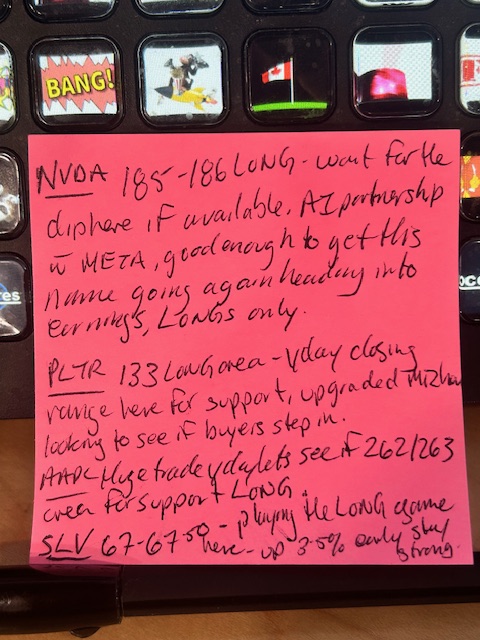 BANG!
NVDA 185-186 LONG - wait for the
dip here if available. AI partnership
w META, good enough to get this
name going again heading into
earnings, LONGS only.
PLTR 133 Long area - yday closing
range here for support, upgraded Mizuho
looking to see if buyers step in.
AAPL Huge trade yday lets see if 262/263
area for support LONG
SLV 67-67.50 - playing the LONG game
here - up 3.5% early stay
strong.